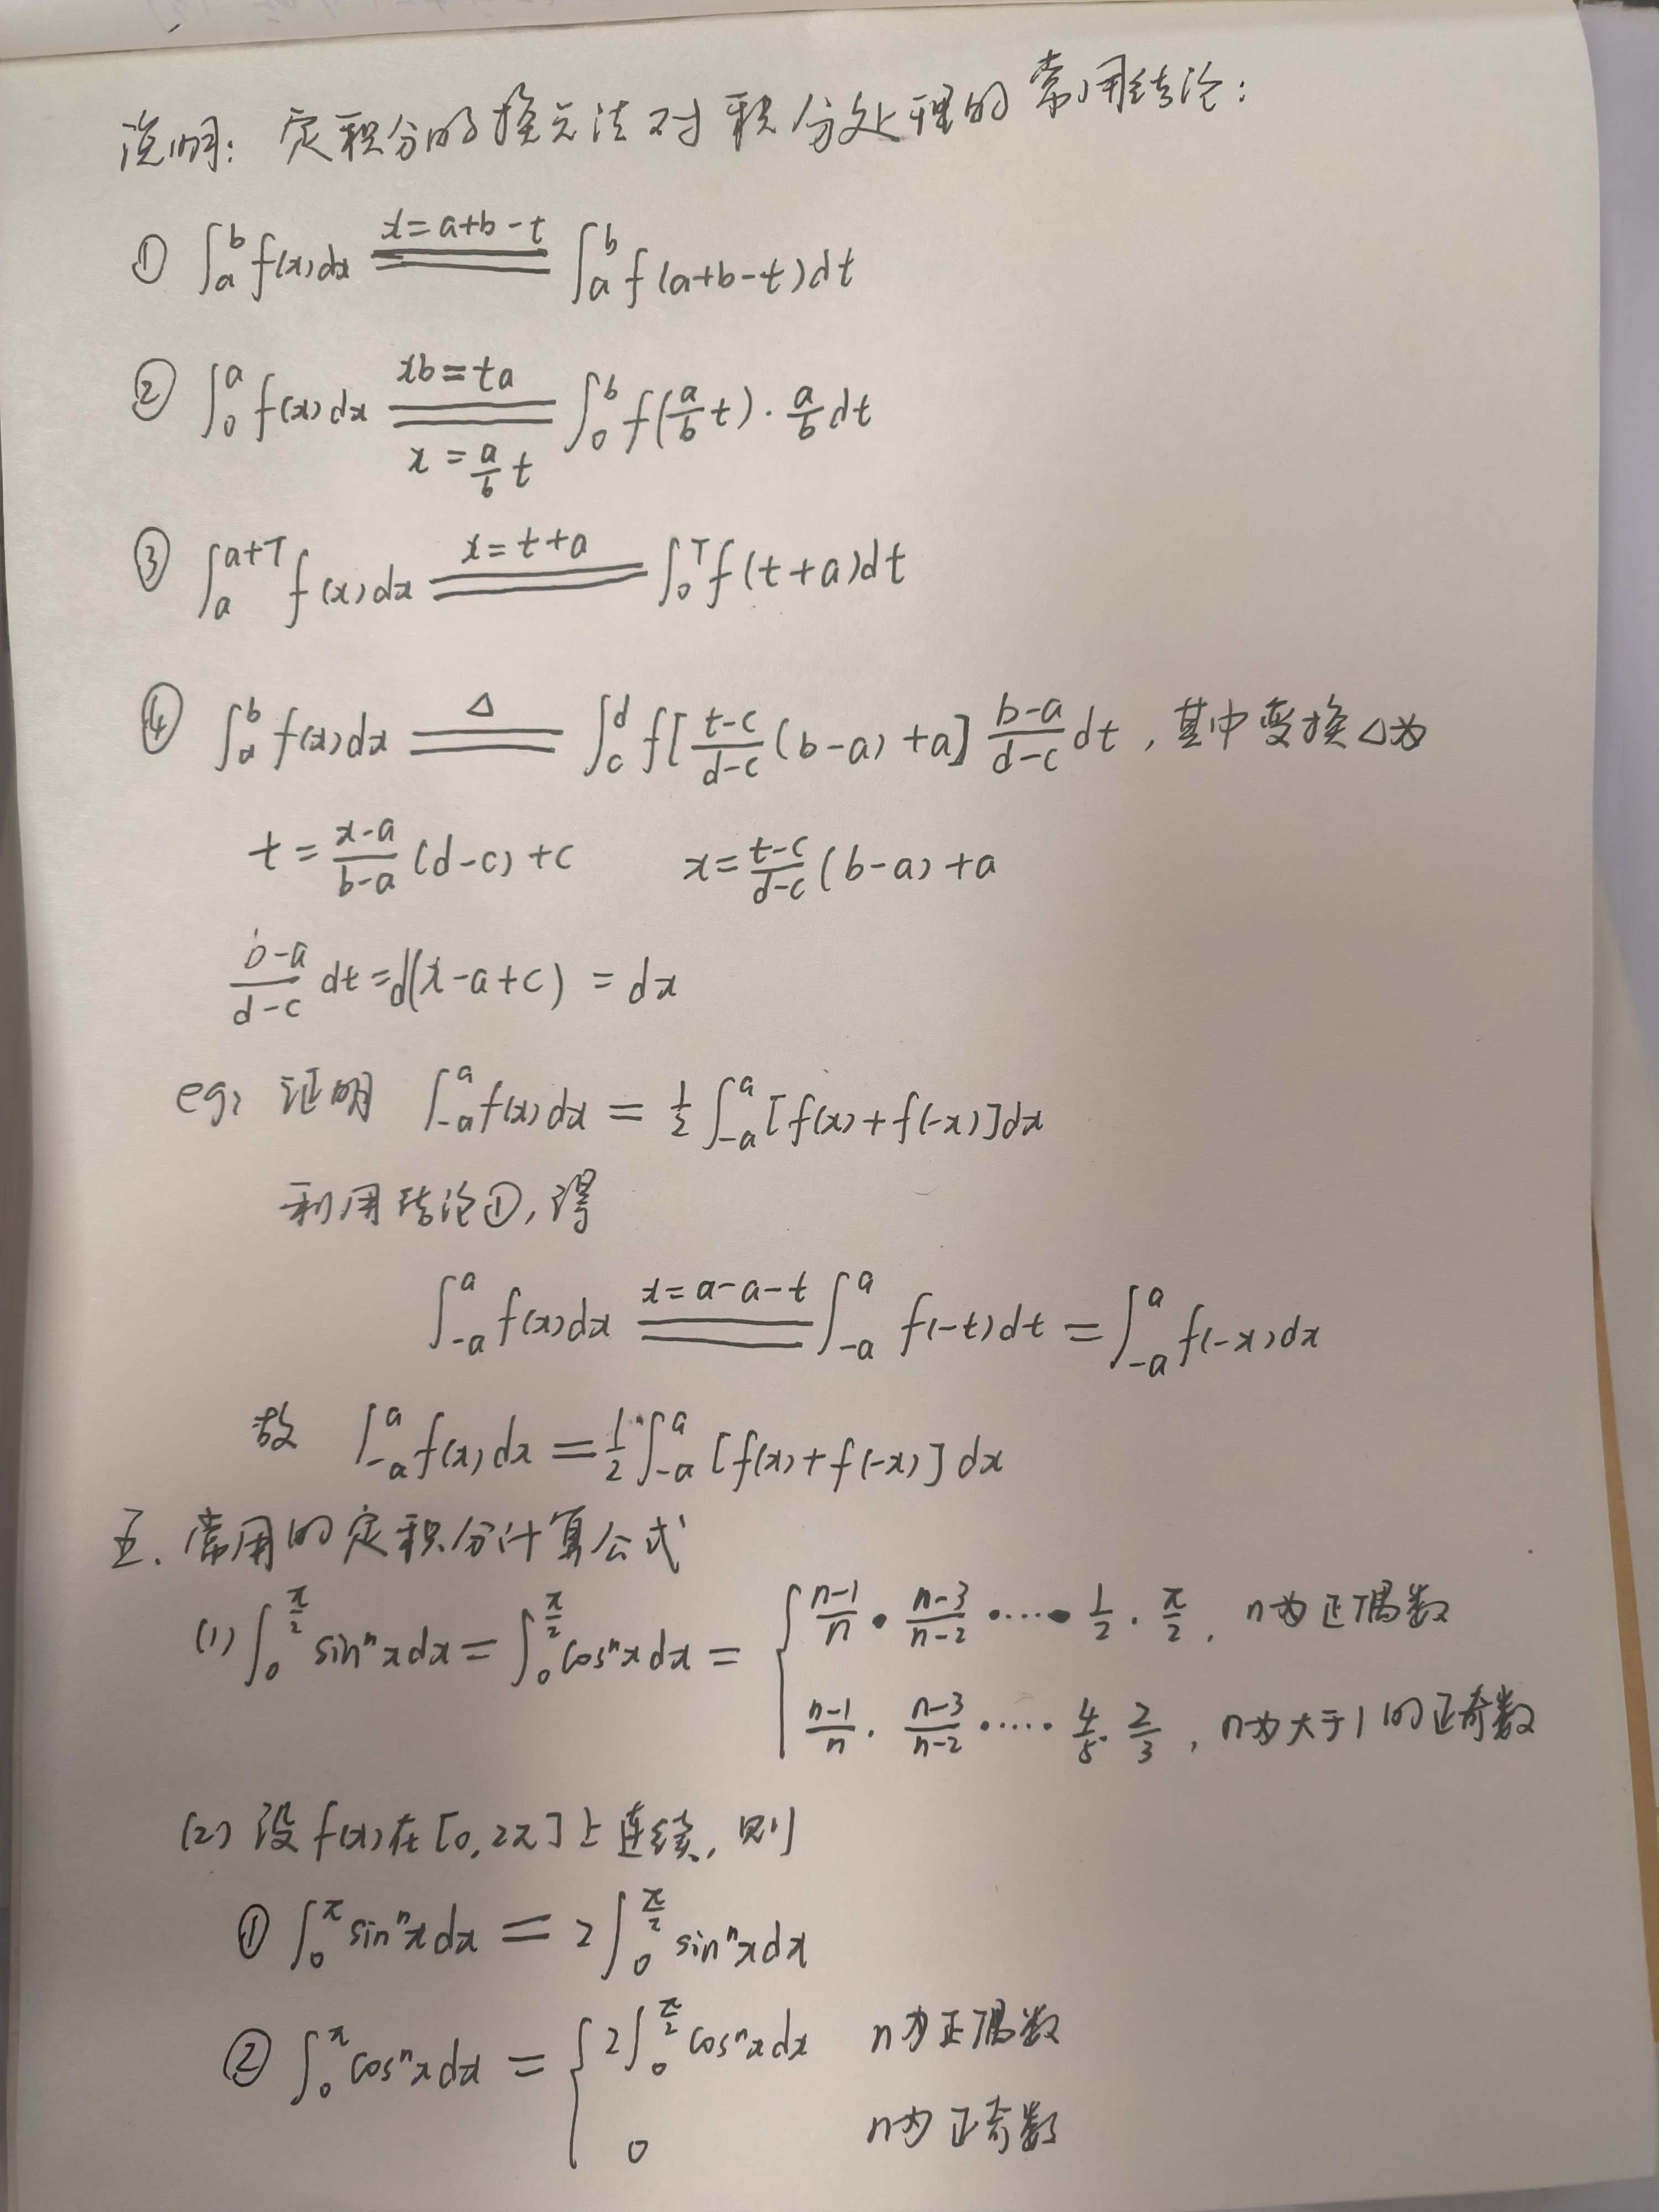 说明: 定积分的换元法对积分处理的常用结论:
① ∫_a^b f(x)dx \xlongequal{x=a+b-t} ∫_a^b f(a+b-t)dt
② ∫_0^a f(x)dx \xlongequal[x=\frac{a}{b}t]{xb=ta} ∫_0^b f(\frac{a}{b}t)·\frac{a}{b}dt
③ ∫_a^{a+T} f(x)dx \xlongequal{x=t+a} ∫_0^T f(t+a)dt
④ ∫_a^b f(x)dx \xlongequal{Δ} ∫_c^d f[\frac{t-c}{d-c}(b-a)+a]\frac{b-a}{d-c}dt, 其中变换Δ为
t=\frac{x-a}{b-a}(d-c)+c x=\frac{t-c}{d-c}(b-a)+a
\frac{b-a}{d-c}dt=d(x-a+c)=dx
eg: 证明 ∫_{-a}^a f(x)dx=\frac{1}{2}∫_{-a}^a[f(x)+f(-x)]dx
利用结论①,得
∫_{-a}^a f(x)dx \xlongequal{x=a-a-t} ∫_{-a}^a f(-t)dt=∫_{-a}^a f(-x)dx
故 ∫_{-a}^a f(x)dx=\frac{1}{2}∫_{-a}^a[f(x)+f(-x)]dx
五. 常用的定积分计算公式
(1) ∫_0^{\frac{π}{2}} sin^n x dx=∫_0^{\frac{π}{2}} cos^n x dx= { \frac{n-1}{n}·\frac{n-3}{n-2}·····\frac{1}{2}·\frac{π}{2}, n为正偶数
\frac{n-1}{n}·\frac{n-3}{n-2}·····\frac{4}{5}·\frac{2}{3}, n为大于1的正奇数
(2) 设f(x)在[0,2π]上连续, 则
① ∫_0^π sin^n x dx=2∫_0^{\frac{π}{2}} sin^n x dx
② ∫_0^π cos^n x dx= { 2∫_0^{\frac{π}{2}} cos^n x dx n为正偶数
0 n为正奇数